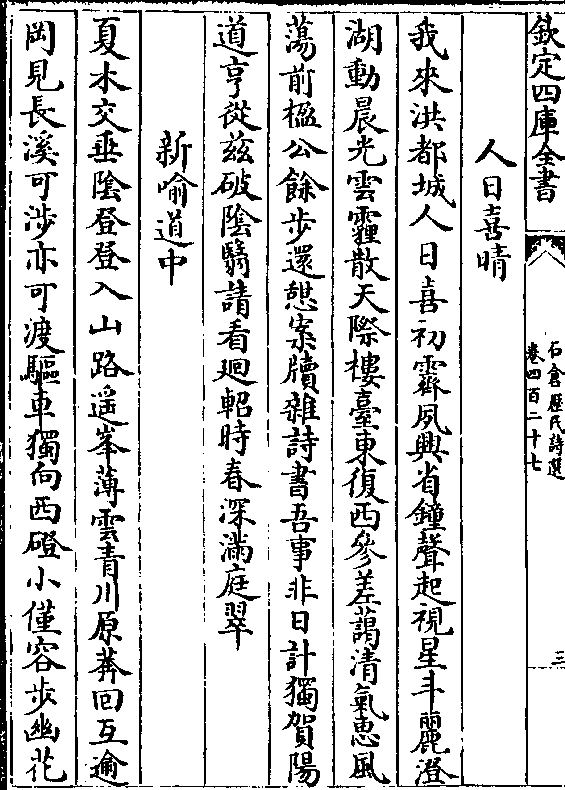 欽定四庫全書
石倉歷代詩選
卷四百二十七
三
人日喜晴
我來洪都城人日喜初霽夙興省鐘聲起視星斗麗澄
湖動晨光雲霾散天際樓臺東復西參差藹清氣惠風
蕩前楹公餘步還憩案牘雜詩書吾事非日計獨賀陽
道亨從兹破陰翳請看廻軺時春深滿庭翠
新喻道中
夏木交垂陰登登入山路遥峯薄雲青川原莽回互逾
岡見長溪可涉亦可渡驅車獨向西磴小僅容步幽花